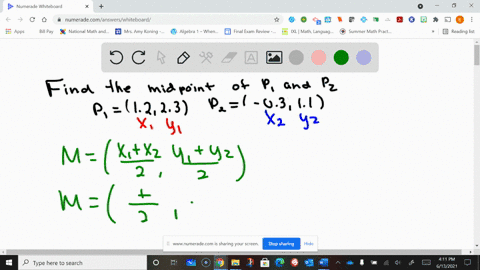 Numerade Whiteboard
numerade.com/answers/whiteboard/
Apps Bill Pay National Math and... Mrs. Amy Koning -... Algebra 1 – Wham... Final Exam Review -... IXL | Math, Languag... Math Summer Pack...
Find the midpoint of P₁ and P₂
P₁ = (1.2, 2.3) P₂ = (-0.3, 1.1)
x₁ y₁ x₂ y₂
M = (x₁+x₂/2, y₁+y₂/2)
M = (+/2, .
www.numerade.com is sharing your screen. Stop sharing Hide
Type here to search
4:11 PM
6/13/2021